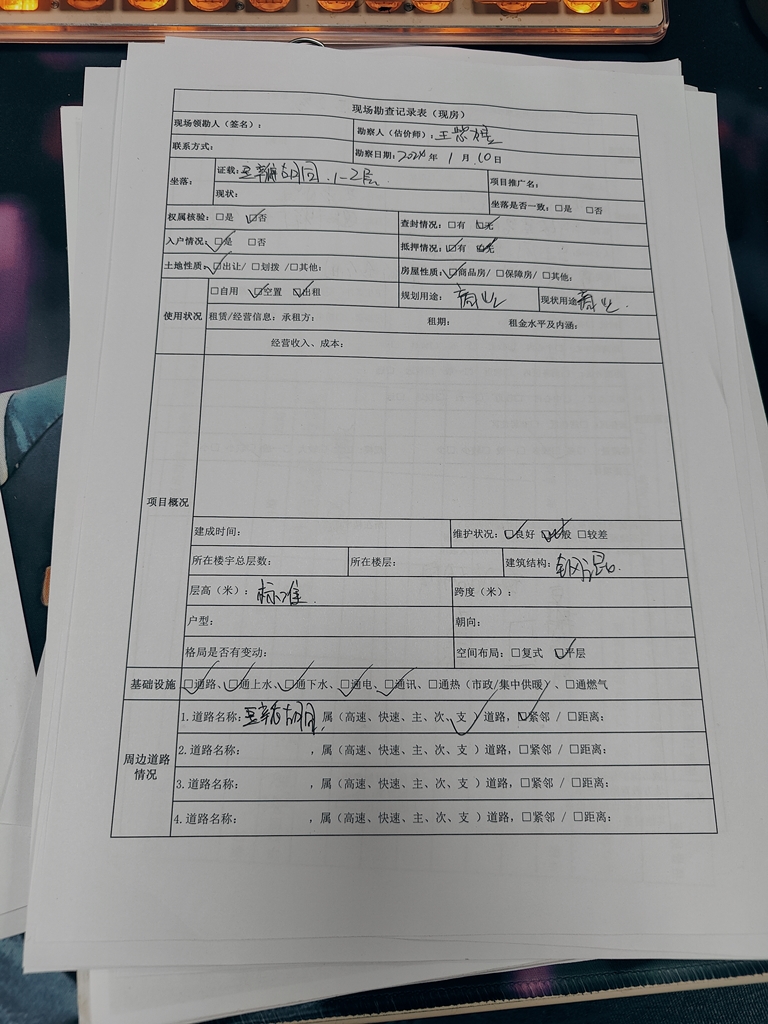 现场勘查记录表（现房）
现场领勘人（签名）： 勘察人（估价师）：王
联系方式： 勘察日期：2024年 1月 10日
坐落： 证载： 胡同 1-2层 项目推广名：
现状： 坐落是否一致：□是 □否
权属核验：□是 ☑否 查封情况：□有 ☑无
入户情况：☑是 □否 抵押情况：☑有 ☑无
土地性质：☑出让/ □划拨 /□其他： 房屋性质：☑商品房/ □保障房/ □其他：
使用状况 □自用 ☑空置 ☑出租 规划用途：商业 现状用途：商业
租赁/经营信息：承租方： 租期： 租金水平及内涵：
经营收入、成本：
项目概况
建成时间： 维护状况：☑良好 ☑一般 □较差
所在楼宇总层数： 所在楼层： 建筑结构：钢混
层高（米）：标准 跨度（米）：
户型： 朝向：
格局是否有变动： 空间布局：□复式 ☑平层
基础设施 ☑通路、☑通上水、☑通下水、☑通电、☑通讯、□通热（市政/集中供暖）、□通燃气
周边道路情况
1.道路名称： 胡同，属（高速、快速、主、次、支✓）道路，☑紧邻 / □距离：
2.道路名称： ，属（高速、快速、主、次、支 ）道路，□紧邻 / □距离：
3.道路名称： ，属（高速、快速、主、次、支 ）道路，□紧邻 / □距离：
4.道路名称： ，属（高速、快速、主、次、支 ）道路，□紧邻 / □距离：